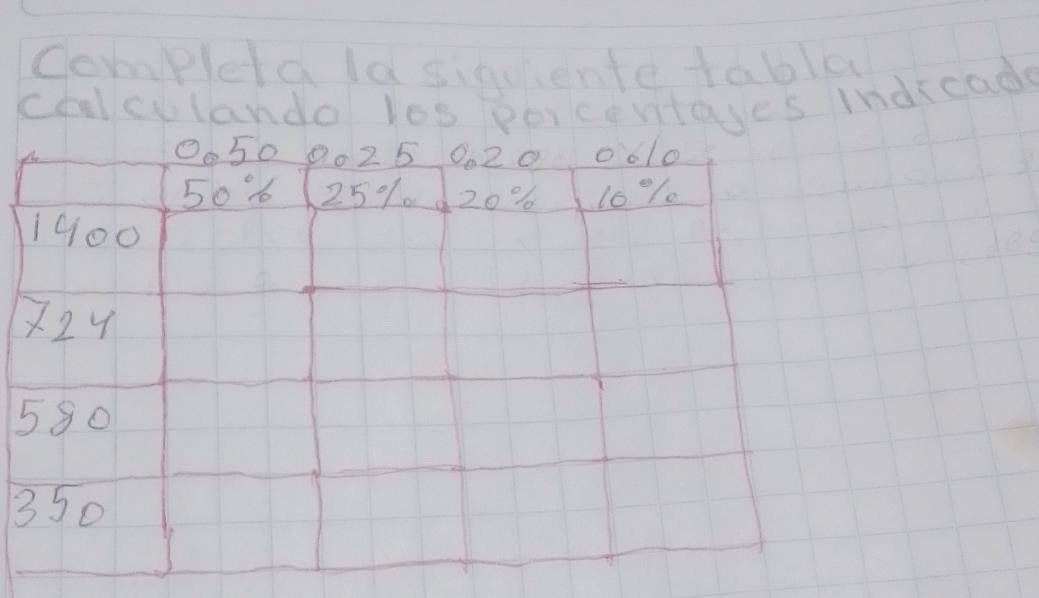 Completa la siguiente tabla
calculando los porcentages indicado
0.50 0.25 0.20 0.10
50% 25% 20% 10%
1400
724
580
350